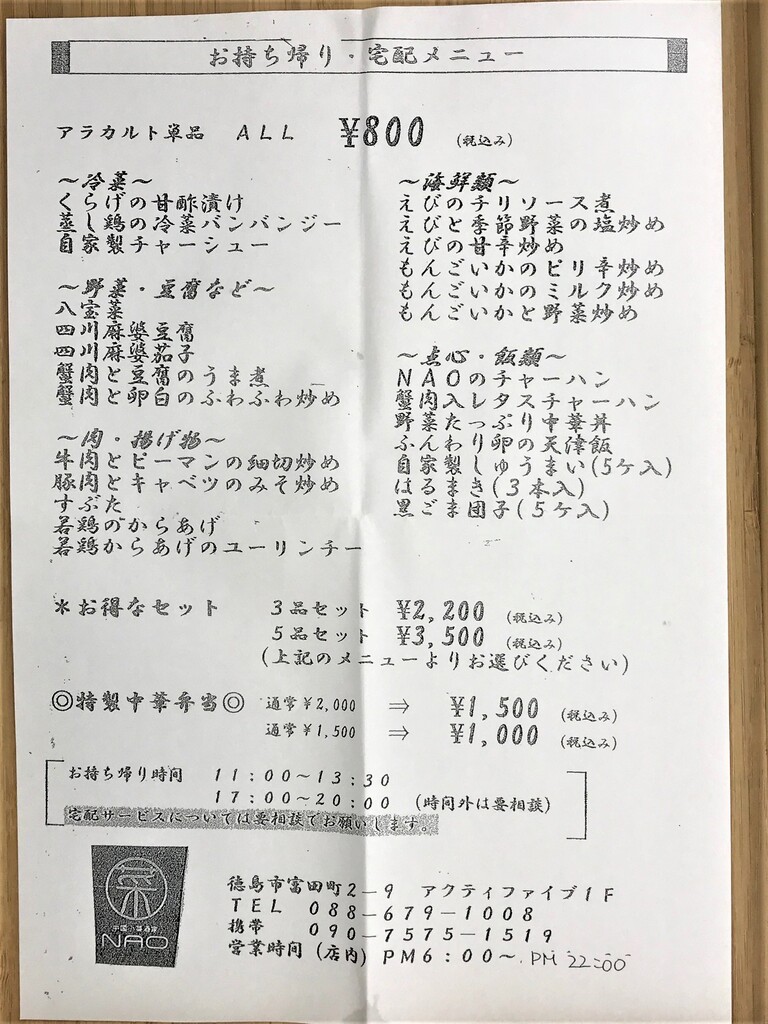 お持ち帰り・宅配メニュー
アラカルト単品 ALL ¥800 (税込み)
～冷菜～
くらげの甘酢漬け
蒸し鶏の冷菜バンバンジー
自家製チャーシュー
～野菜・豆腐など～
八宝菜
四川麻婆豆腐
四川麻婆茄子
蟹肉と豆腐のうま煮
蟹肉と卵白のふわふわ炒め
～肉・揚げ物～
牛肉とピーマンの細切炒め
豚肉とキャベツのみそ炒め
すぶた
若鶏のからあげ
若鶏からあげのユーリンチー
～海鮮類～
えびのチリソース煮
えびと季節野菜の塩炒め
えびの甘辛炒め
もんごいかのピリ辛炒め
もんごいかのミルク炒め
もんごいかと野菜炒め
～点心・飯類～
NAOのチャーハン
蟹肉入レタスチャーハン
野菜たっぷり中華丼
ふんわり卵の天津飯
自家製しゅうまい(5ケ入)
はるまき(3本入)
黒ごま団子(5ケ入)
＊お得なセット 3品セット ¥2,200 (税込み)
5品セット ¥3,500 (税込み)
(上記のメニューよりお選びください)
◎特製中華弁当◎ 通常¥2,000 ⇒ ¥1,500 (税込み)
通常¥1,500 ⇒ ¥1,000 (税込み)
お持ち帰り時間 11:00～13:30
17:00～20:00 (時間外は要相談)
宅配サービスについては要相談でお願いします。
NAO
徳島市富田町2－9 アクティファイブ1F
TEL 088－679－1008
携帯 090－7575－1519
営業時間(店内)PM6:00～.PM 22:00